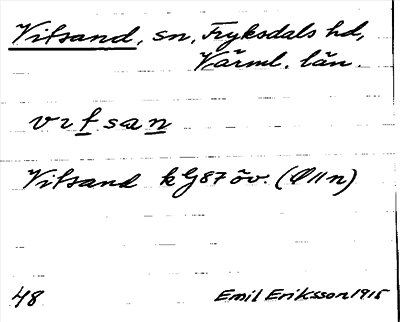 Vitsand, sn, Fryksdals hd,
Värml. län.
vıtsan
Vitsand kG87 öv. (Ø11n)
48
Emil Eriksson 1915